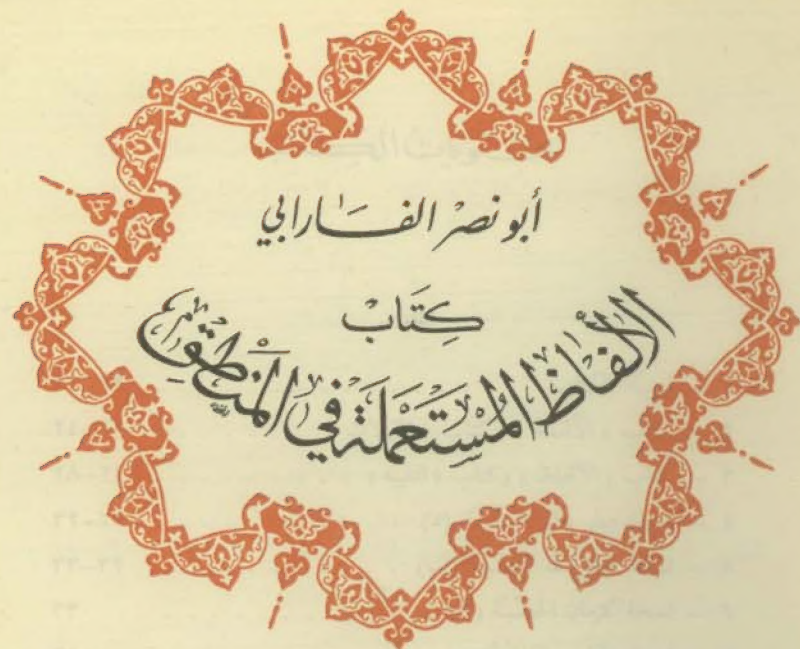 أبو نصر الفارابي
كتاب
الألفاظ المستعملة في المنطق